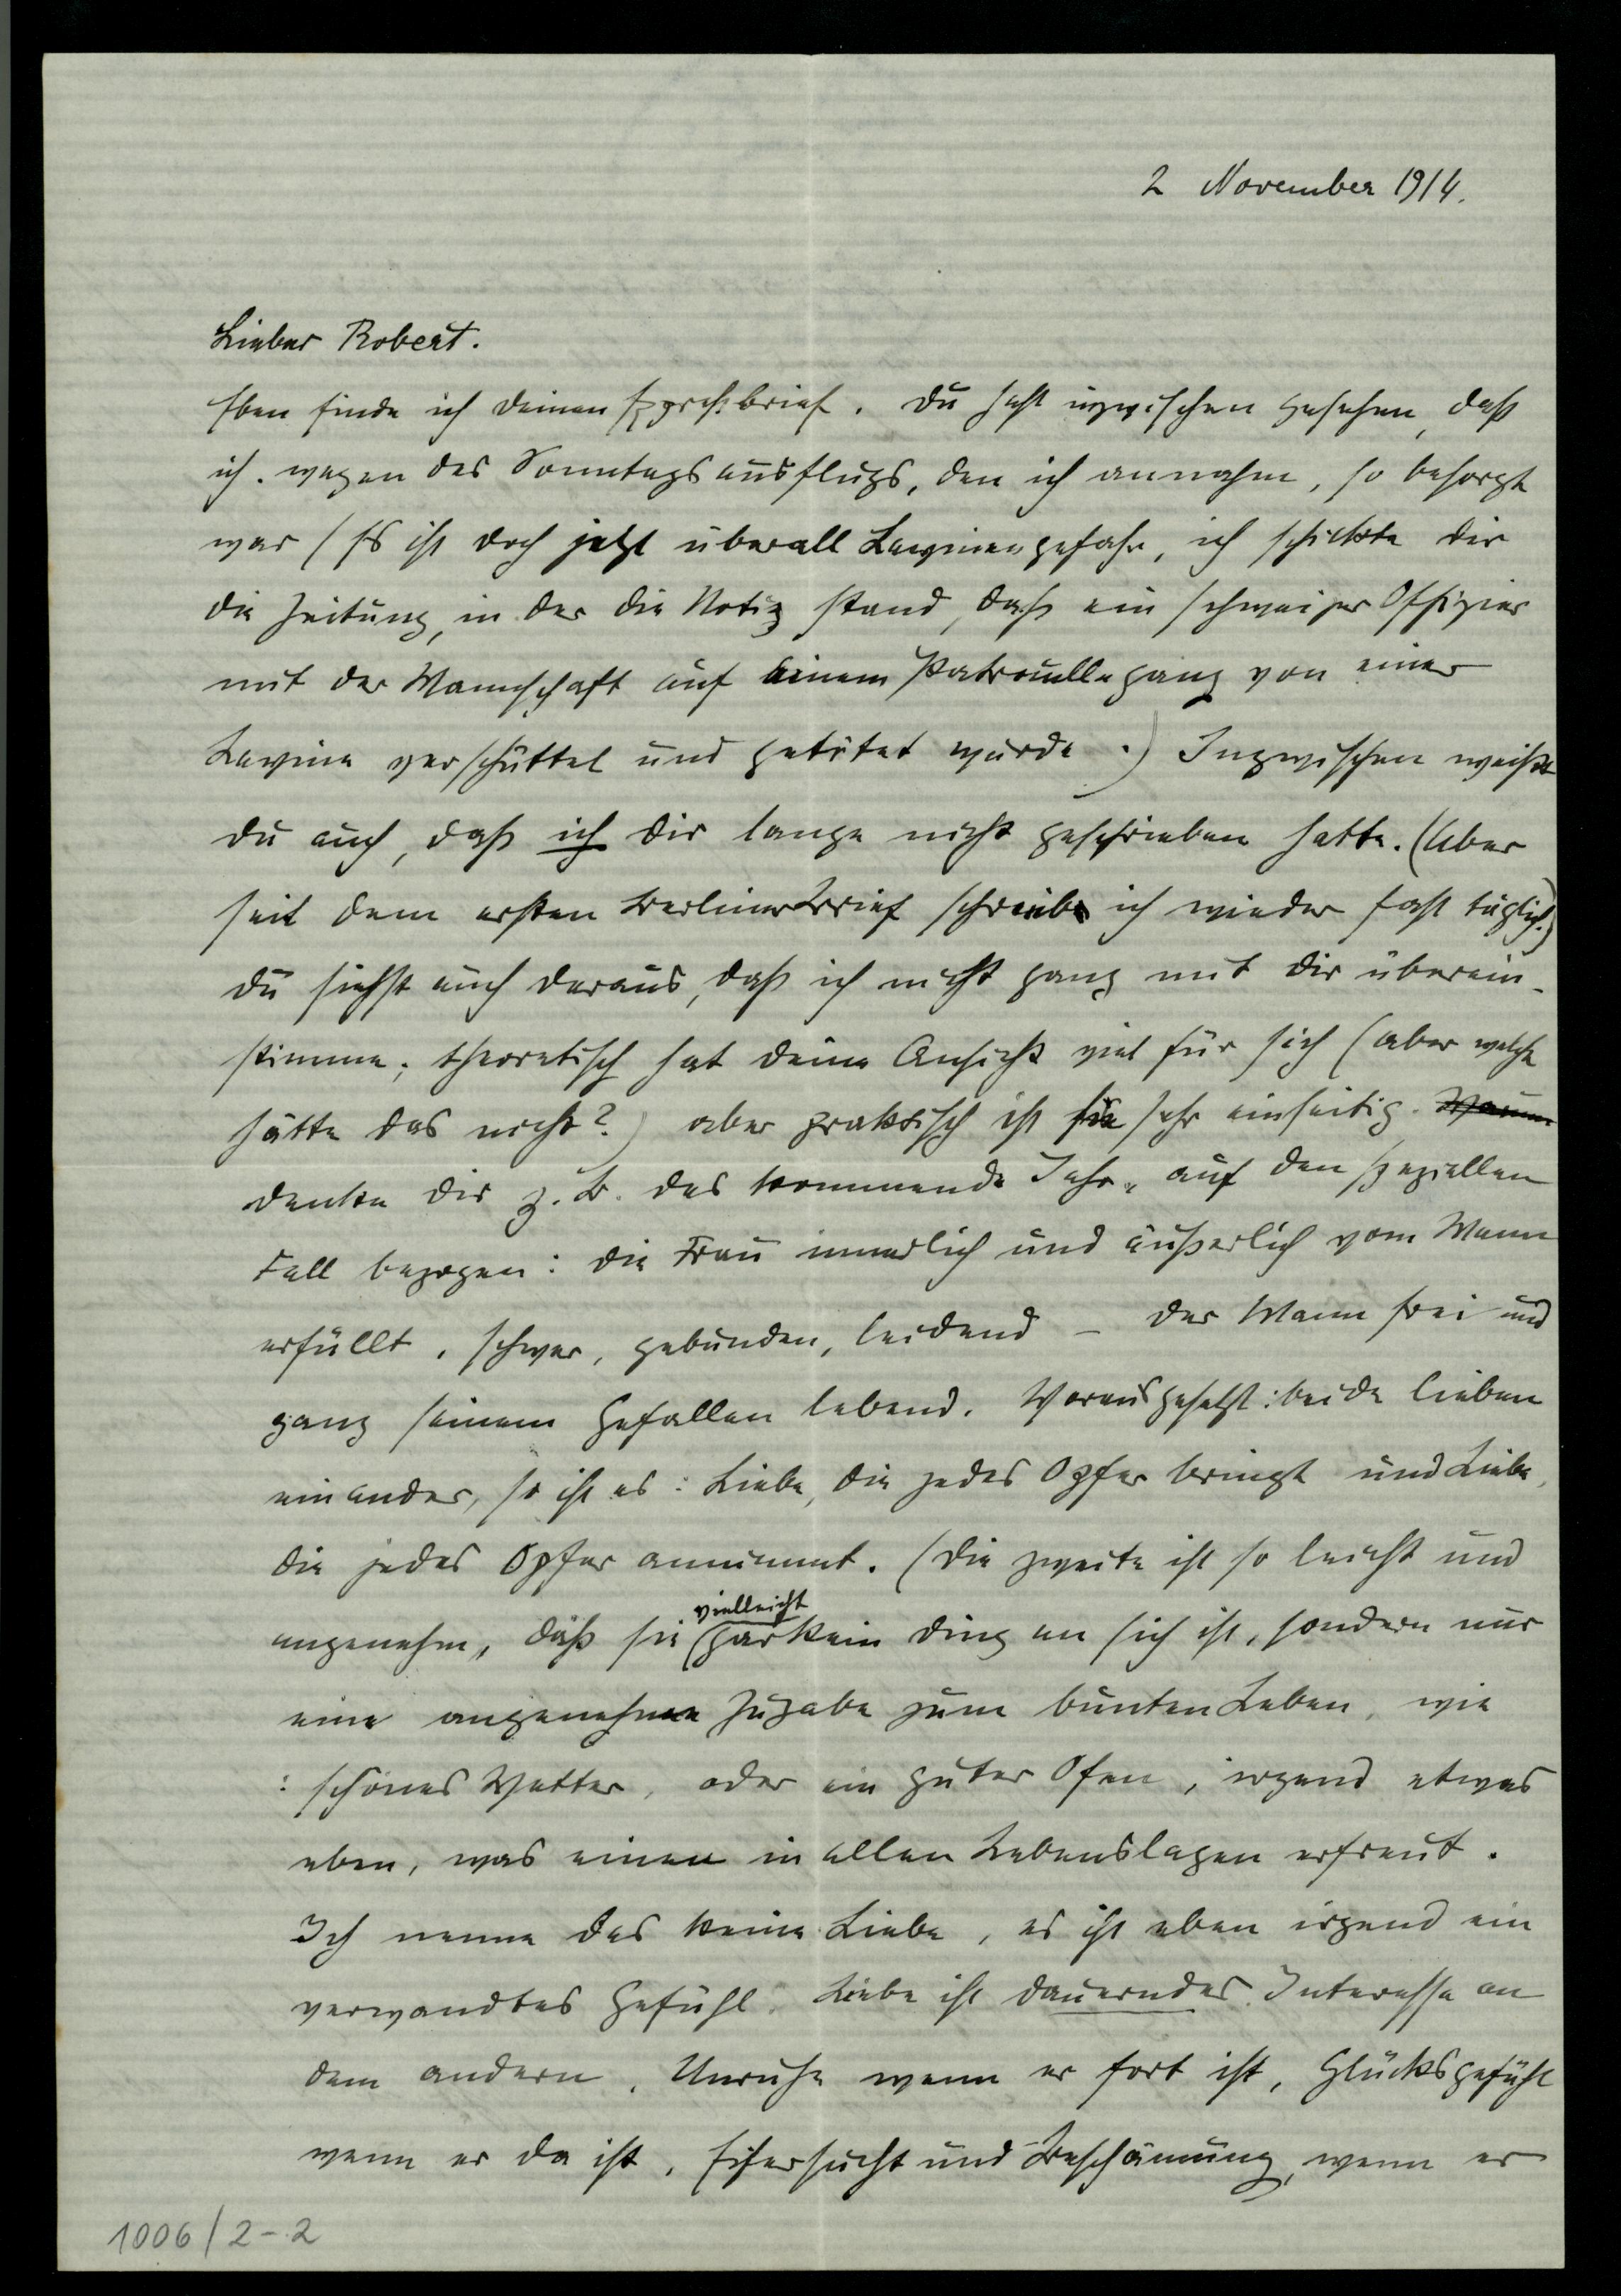 2 November 1914.
Lieber Robert.
Eben finde ich deinen Expreßbrief. Du hast inzwischen gesehen, daß
ich wegen des Sonntagsausflugs, den ich annahm, so besorgt
war (Es ist doch jetzt überall Lawinengefahr, ich schickte dir
die Zeitung, in der die Notiz stand, daß ein schweizer Offizier
mit der Mannschaft auf einem Patroullegang von einer
Lavine verschüttet und getötet wurde.) Inzwischen weißt
du auch, daß ich dir lange nicht geschrieben hatte. (Aber
seit dem ersten Berliner Brief schreibe ich wieder fast täglich.)
Du siehst auch daraus, daß ich nicht ganz mit dir überein-
stimme; theoretisch hat deine Ansicht viel für sich (aber welche
hätte das nicht?) aber praktisch ist sie sehr einseitig. Warum
denke dir z. B. das kommende Jahr, auf den speziellen
Fall bezogen: die Frau innerlich und äußerlich vom Mann
erfüllt, schwer, gebunden, leidend – der Mann frei und
ganz seinem Gefallen lebend. Vorausgesetzt: beide lieben
einander, so ist es: Liebe, die jedes Opfer bringt und Liebe,
die jedes Opfer annimmt. (Die zweite ist so leicht und
angenehm, daß sie (vielleicht gar kein Ding an sich ist, sondern nur
eine angenehme Zugabe zum bunten Leben, wie
: schönes Wetter, oder ein guter Ofen, irgend etwas
eben, was einen in allen Lebenslagen erfreut.
Ich nenne das keine Liebe, es ist eben irgend ein
verwandtes Gefühl. Liebe ist dauerndes Interesse an
dem andern, Unruhe wenn er fort ist, Glücksgefühl
wenn er da ist, Eifersucht und Beschämung, wenn er
1006/2-2